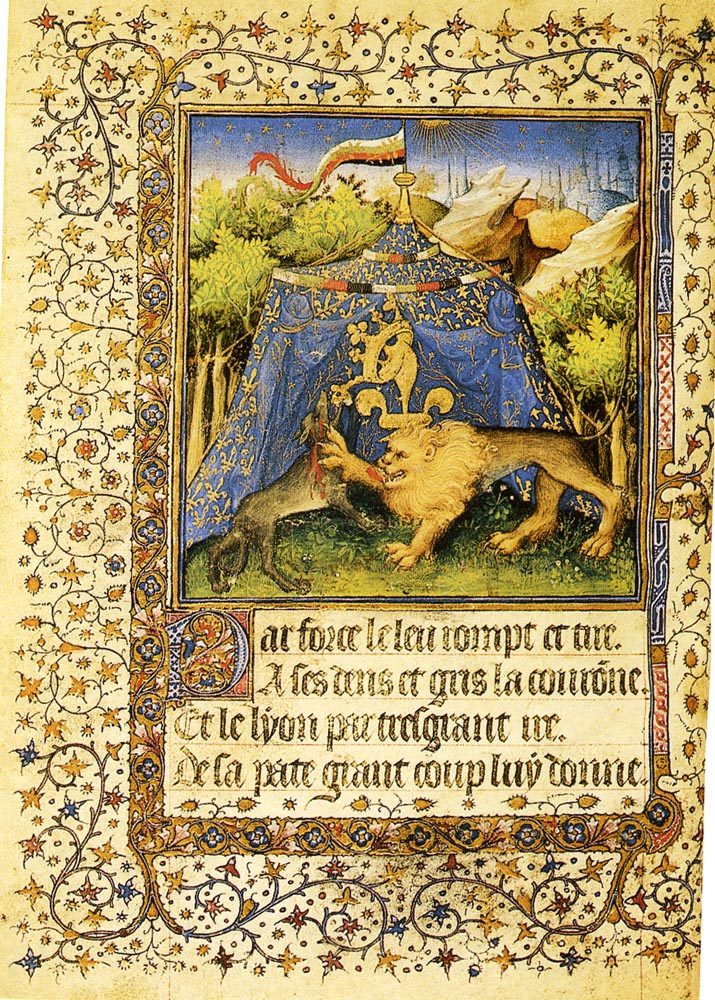 Par force le leu rompt et tire.
A ses dens et gris la courōne.
Et le lyon par tresgrant ire.
De sa pate grant coup luy donne.